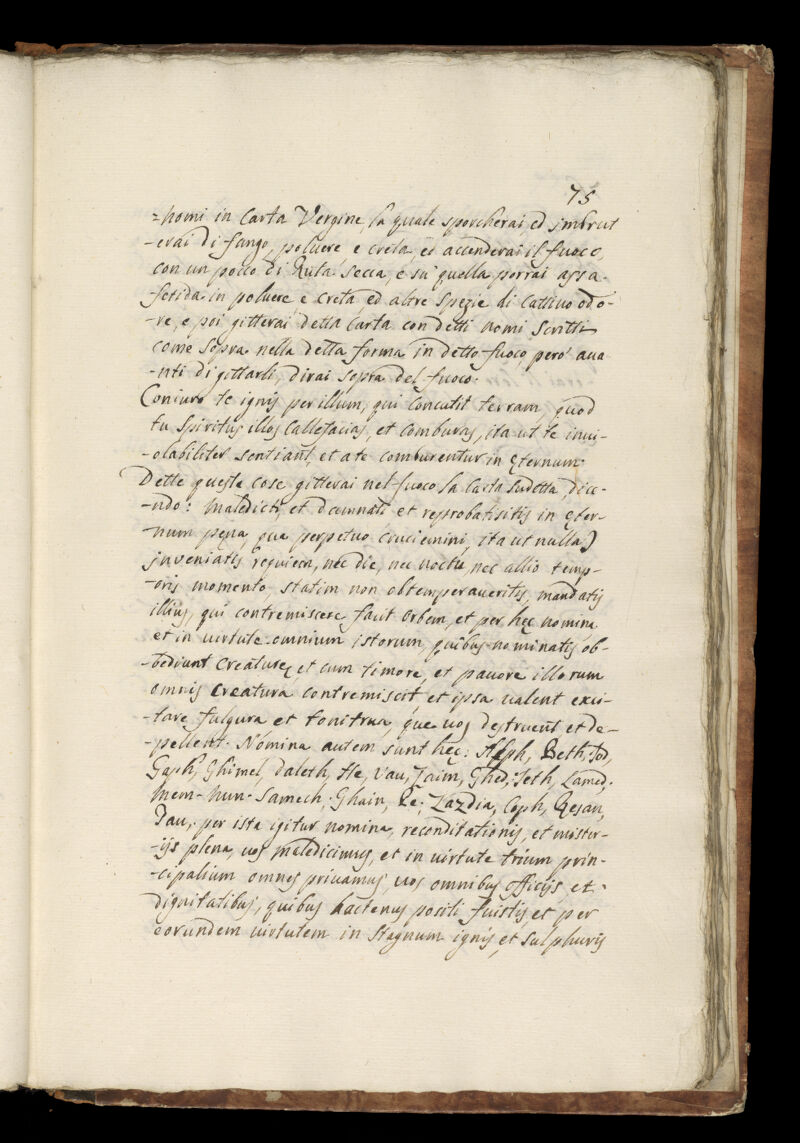 75
-nomi in Carta Vergine, la quale sporcherai, ed imbrut
-erai di fango, poluere e creta, ed accenderai il fuoco,
con un poco di Ruta secca, e su quella porrai assa-
-fetida in poluere e creta ed altre spezie di cattiuo odo-
-re, e poi gitterai detta Carta con detti nomi scritti
come sopra nella detta forma in detto fuoco però aua
-nti di gittarli, dirai sopra del fuoco:
Coniuro te ignis per illum, qui concutit terram, quod
tu Spiritus illos Callefacias, et comburas, ita ut te inui-
-olabiliter sentiant, et a te comburentur in Eternum.
Dette queste cose gitterai nel fuoco la Carta sudetta, dice-
-ndo: Maledicti, et damnati et reprobati sitis in Eter-
-num pena, qua perpetuo cruciemini, ita ut nulla
inveniatis requiem, nec die, nec noctu, nec allio temp-
-oris momento, statim non obtemperaueritis, mandatis
illius, qui contremiscere facit Orbem, et per hec nomina
et in uirtute omnium istorum, quibus nominatis ob-
-bediunt creature, et cum timore, et pauore illorum
omnis Creatura contremiscit et ipsa ualent exci-
-tare fulgura et tonitrua, que uos destruent et de-
-pellent. Nomina autem sunt hec: Aleph, Beth, Jod,
Gaph, Ghimel, Daleth, He, Vau, Zaim, Ghed, Teth, Lamed,
Mem-Nun-Samech, Ghain, Pe, Zazdia, Coph, Resan,
Tau, per ista igitur nomina, reconditationis, et mister-
-ijs plena, uos maledicimus, et in uirtute trium prin-
-cipalium omnes priuamus, uos omnibus officijs et
dignitatibus, quibus hactenus positi fuistis et per
eorundem uirtutem in stagnum ignis, et sulphuris